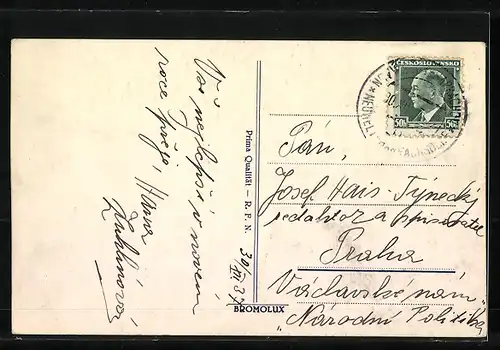 Vše
nejlepší v novém
roce přeje, Hanna
30/XII 37
Prima Qualität – R. F. N.
BROMOLUX
ČESKOSLOVENSKO
50h 50h
Pán,
Josef Hais-Týnecký
redaktor a spisovatel
Praha
Václavské nám
"Národní Politika"